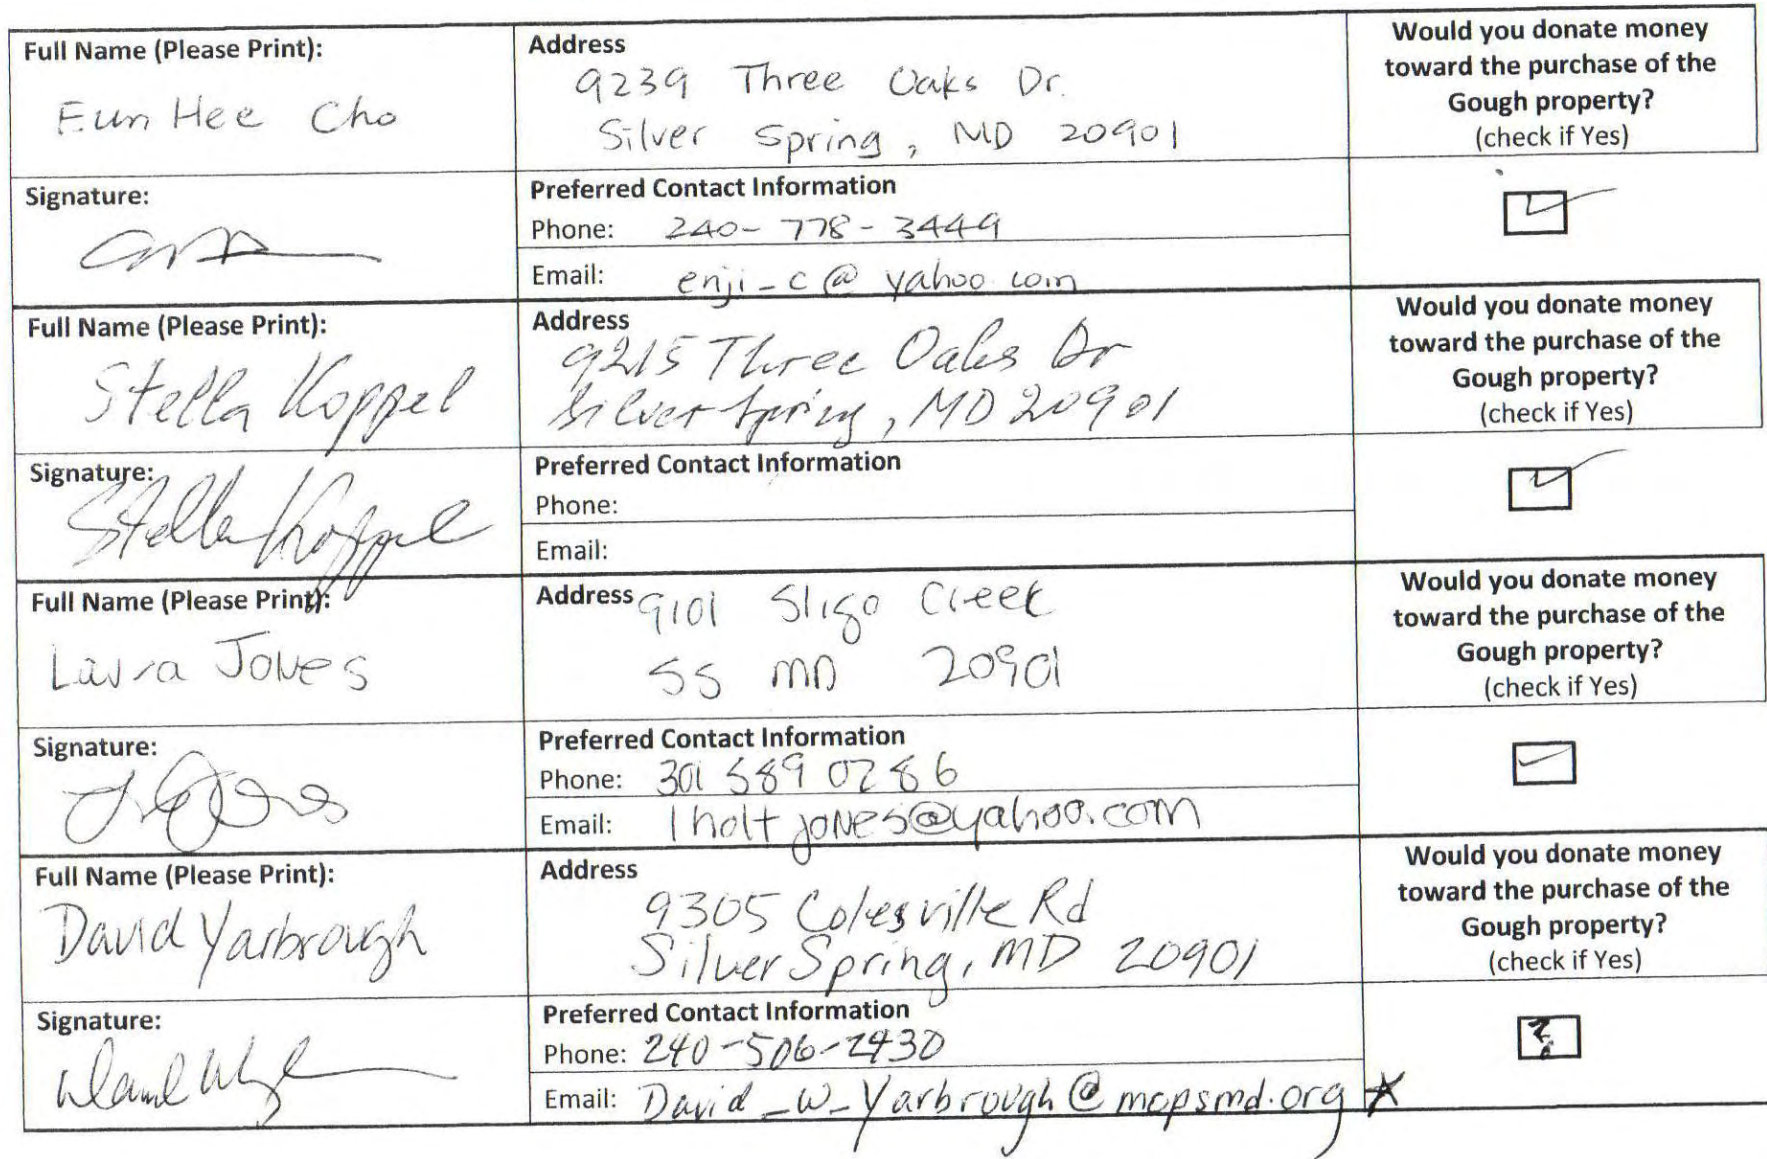 Full Name (Please Print):
Eun Hee Cho
Address
9239 Three Oaks Dr.
Silver Spring, MD 20901
Would you donate money
toward the purchase of the
Gough property?
(check if Yes)
Signature:
Preferred Contact Information
Phone: 240-778-3449
Email: enji_c@yahoo.com
Full Name (Please Print):
Stella Koppel
Address
9215 Three Oaks Dr
Silver Spring, MD 20901
Would you donate money
toward the purchase of the
Gough property?
(check if Yes)
Signature:
Stella Koppel
Preferred Contact Information
Phone:
Email:
Full Name (Please Print):
Laura Jones
Address
9101 Sligo Creek
SS MD 20901
Would you donate money
toward the purchase of the
Gough property?
(check if Yes)
Signature:
Preferred Contact Information
Phone: 301 589 0286
Email: lholtjones@yahoo.com
Full Name (Please Print):
David Yarbrough
Address
9305 Colesville Rd
Silver Spring, MD 20901
Would you donate money
toward the purchase of the
Gough property?
(check if Yes)
Signature:
Preferred Contact Information
Phone: 240-506-2430
?
Email: David_W_Yarbrough@mcpsmd.org